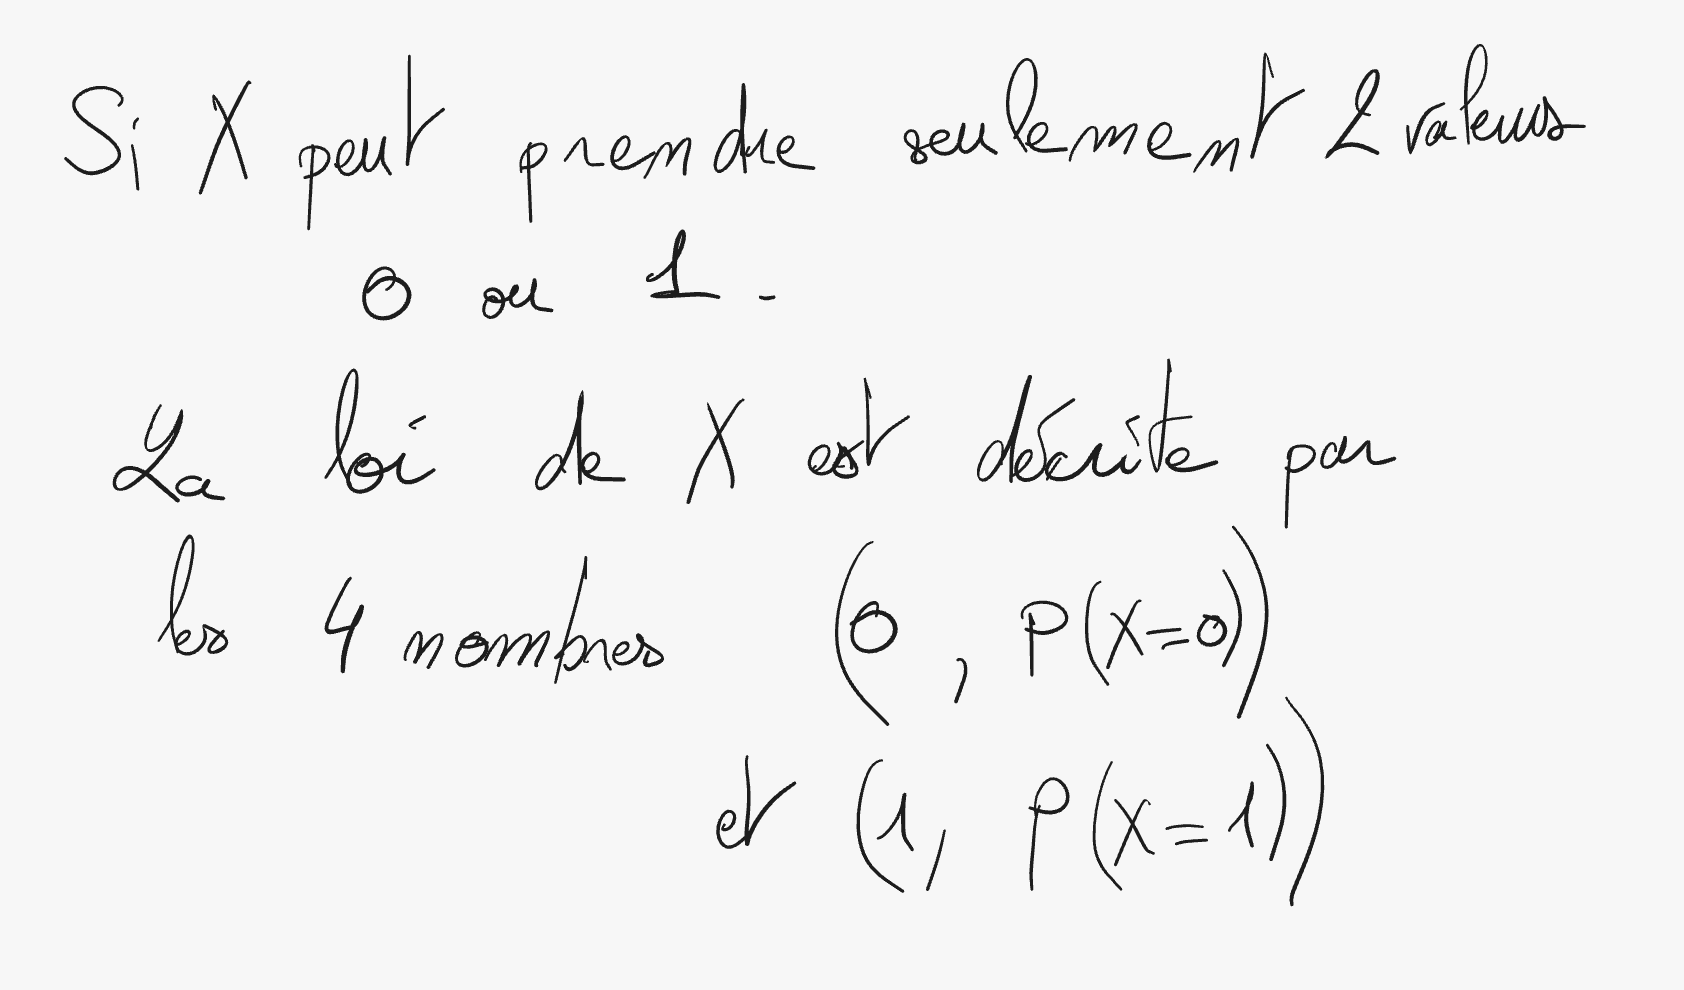 Si X peut prendre seulement 2 valeurs
0 ou 1.
La loi de X est décrite par
les 4 nombres (0, P(X=0))
et (1, P(X=1))